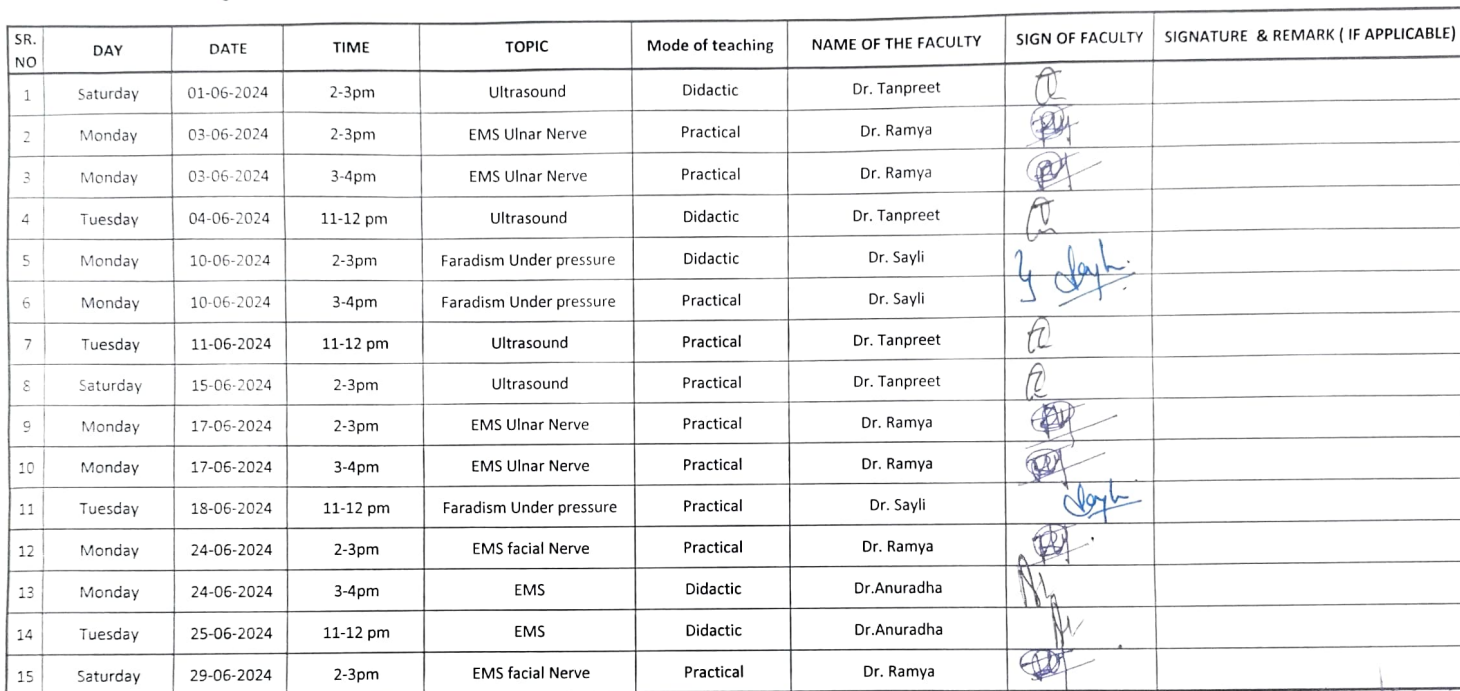 SR. NO DAY DATE TIME TOPIC Mode of teaching NAME OF THE FACULTY SIGN OF FACULTY SIGNATURE & REMARK ( IF APPLICABLE)
1 Saturday 01-06-2024 2-3pm Ultrasound Didactic Dr. Tanpreet
2 Monday 03-06-2024 2-3pm EMS Ulnar Nerve Practical Dr. Ramya
3 Monday 03-06-2024 3-4pm EMS Ulnar Nerve Practical Dr. Ramya
4 Tuesday 04-06-2024 11-12 pm Ultrasound Didactic Dr. Tanpreet
5 Monday 10-06-2024 2-3pm Faradism Under pressure Didactic Dr. Sayli
6 Monday 10-06-2024 3-4pm Faradism Under pressure Practical Dr. Sayli
7 Tuesday 11-06-2024 11-12 pm Ultrasound Practical Dr. Tanpreet
8 Saturday 15-06-2024 2-3pm Ultrasound Practical Dr. Tanpreet
9 Monday 17-06-2024 2-3pm EMS Ulnar Nerve Practical Dr. Ramya
10 Monday 17-06-2024 3-4pm EMS Ulnar Nerve Practical Dr. Ramya
11 Tuesday 18-06-2024 11-12 pm Faradism Under pressure Practical Dr. Sayli
12 Monday 24-06-2024 2-3pm EMS facial Nerve Practical Dr. Ramya
13 Monday 24-06-2024 3-4pm EMS Didactic Dr.Anuradha
14 Tuesday 25-06-2024 11-12 pm EMS Didactic Dr.Anuradha
15 Saturday 29-06-2024 2-3pm EMS facial Nerve Practical Dr. Ramya